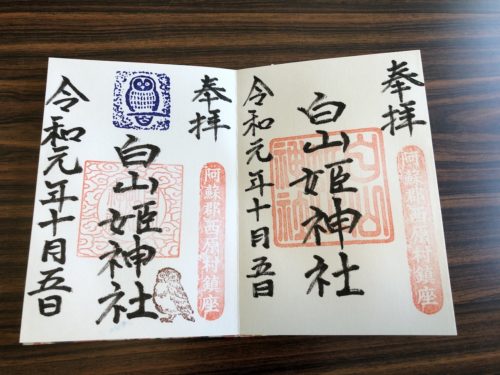 奉拝
阿蘇郡西原村鎮座
白山姫神社
令和元年十月五日
奉拝
阿蘇郡西原村鎮座
白山姫神社
令和元年十月五日